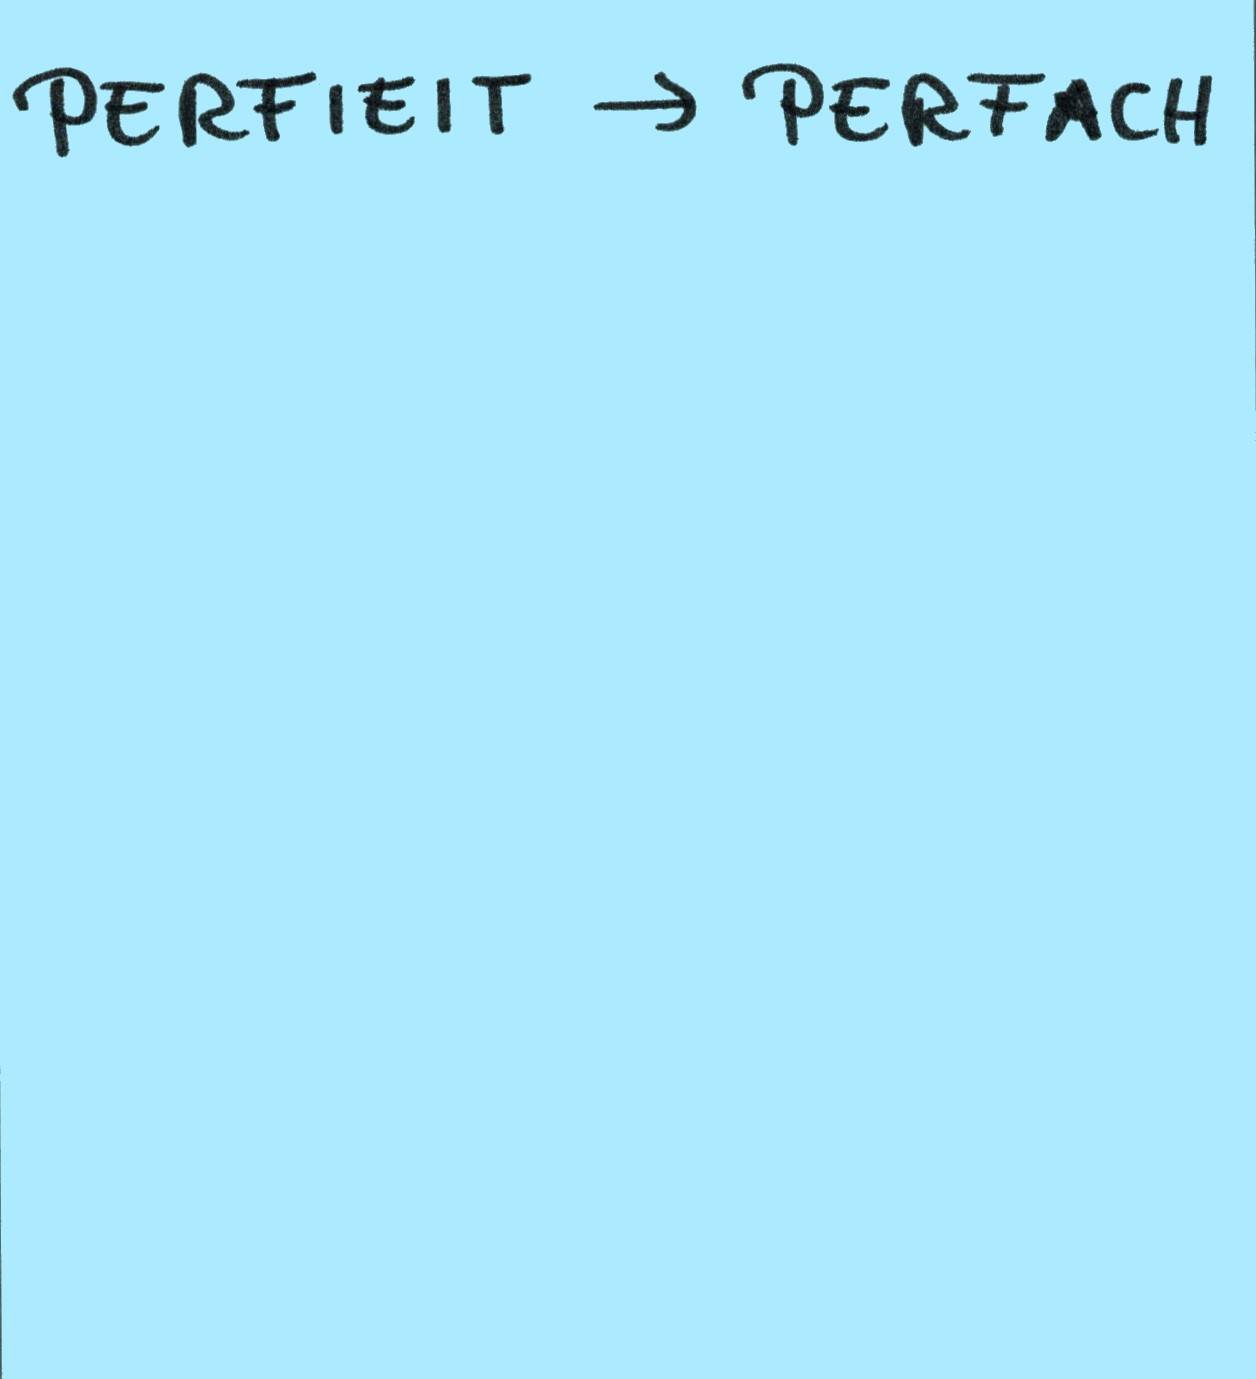 PERFIEIT → PERFACH